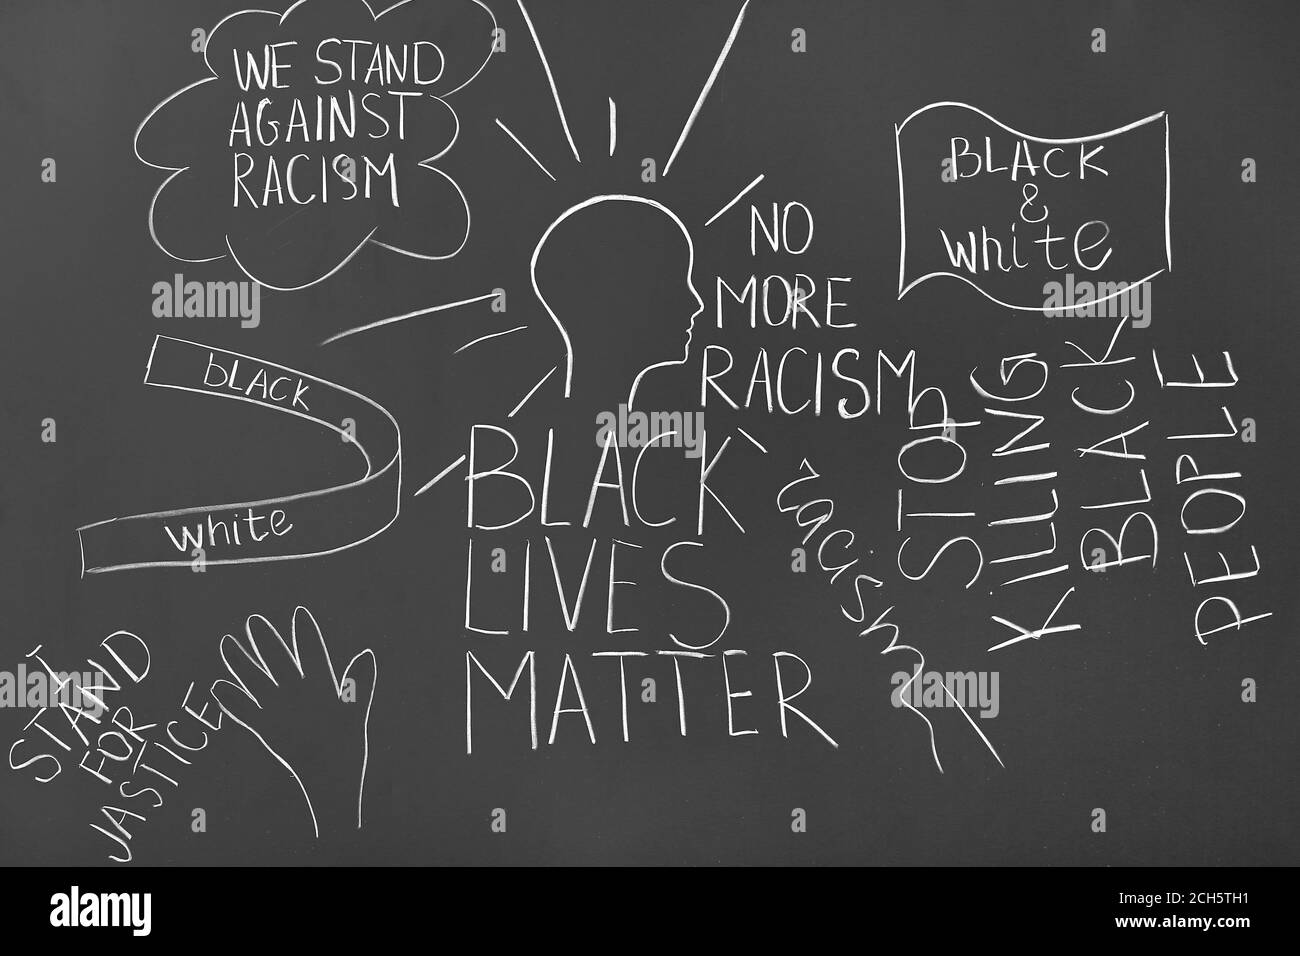 WE STAND
AGAINST
RACISM
BLACK
&
White
NO
MORE
RACISM
bLACK
white
BLACK
LIVES
MATTER
racism
STOP
KILLING
BLACK
PEOPLE
I
STAND
FOR
JASTICE
alamy
Image ID: 2CH5TH1
www.alamy.com